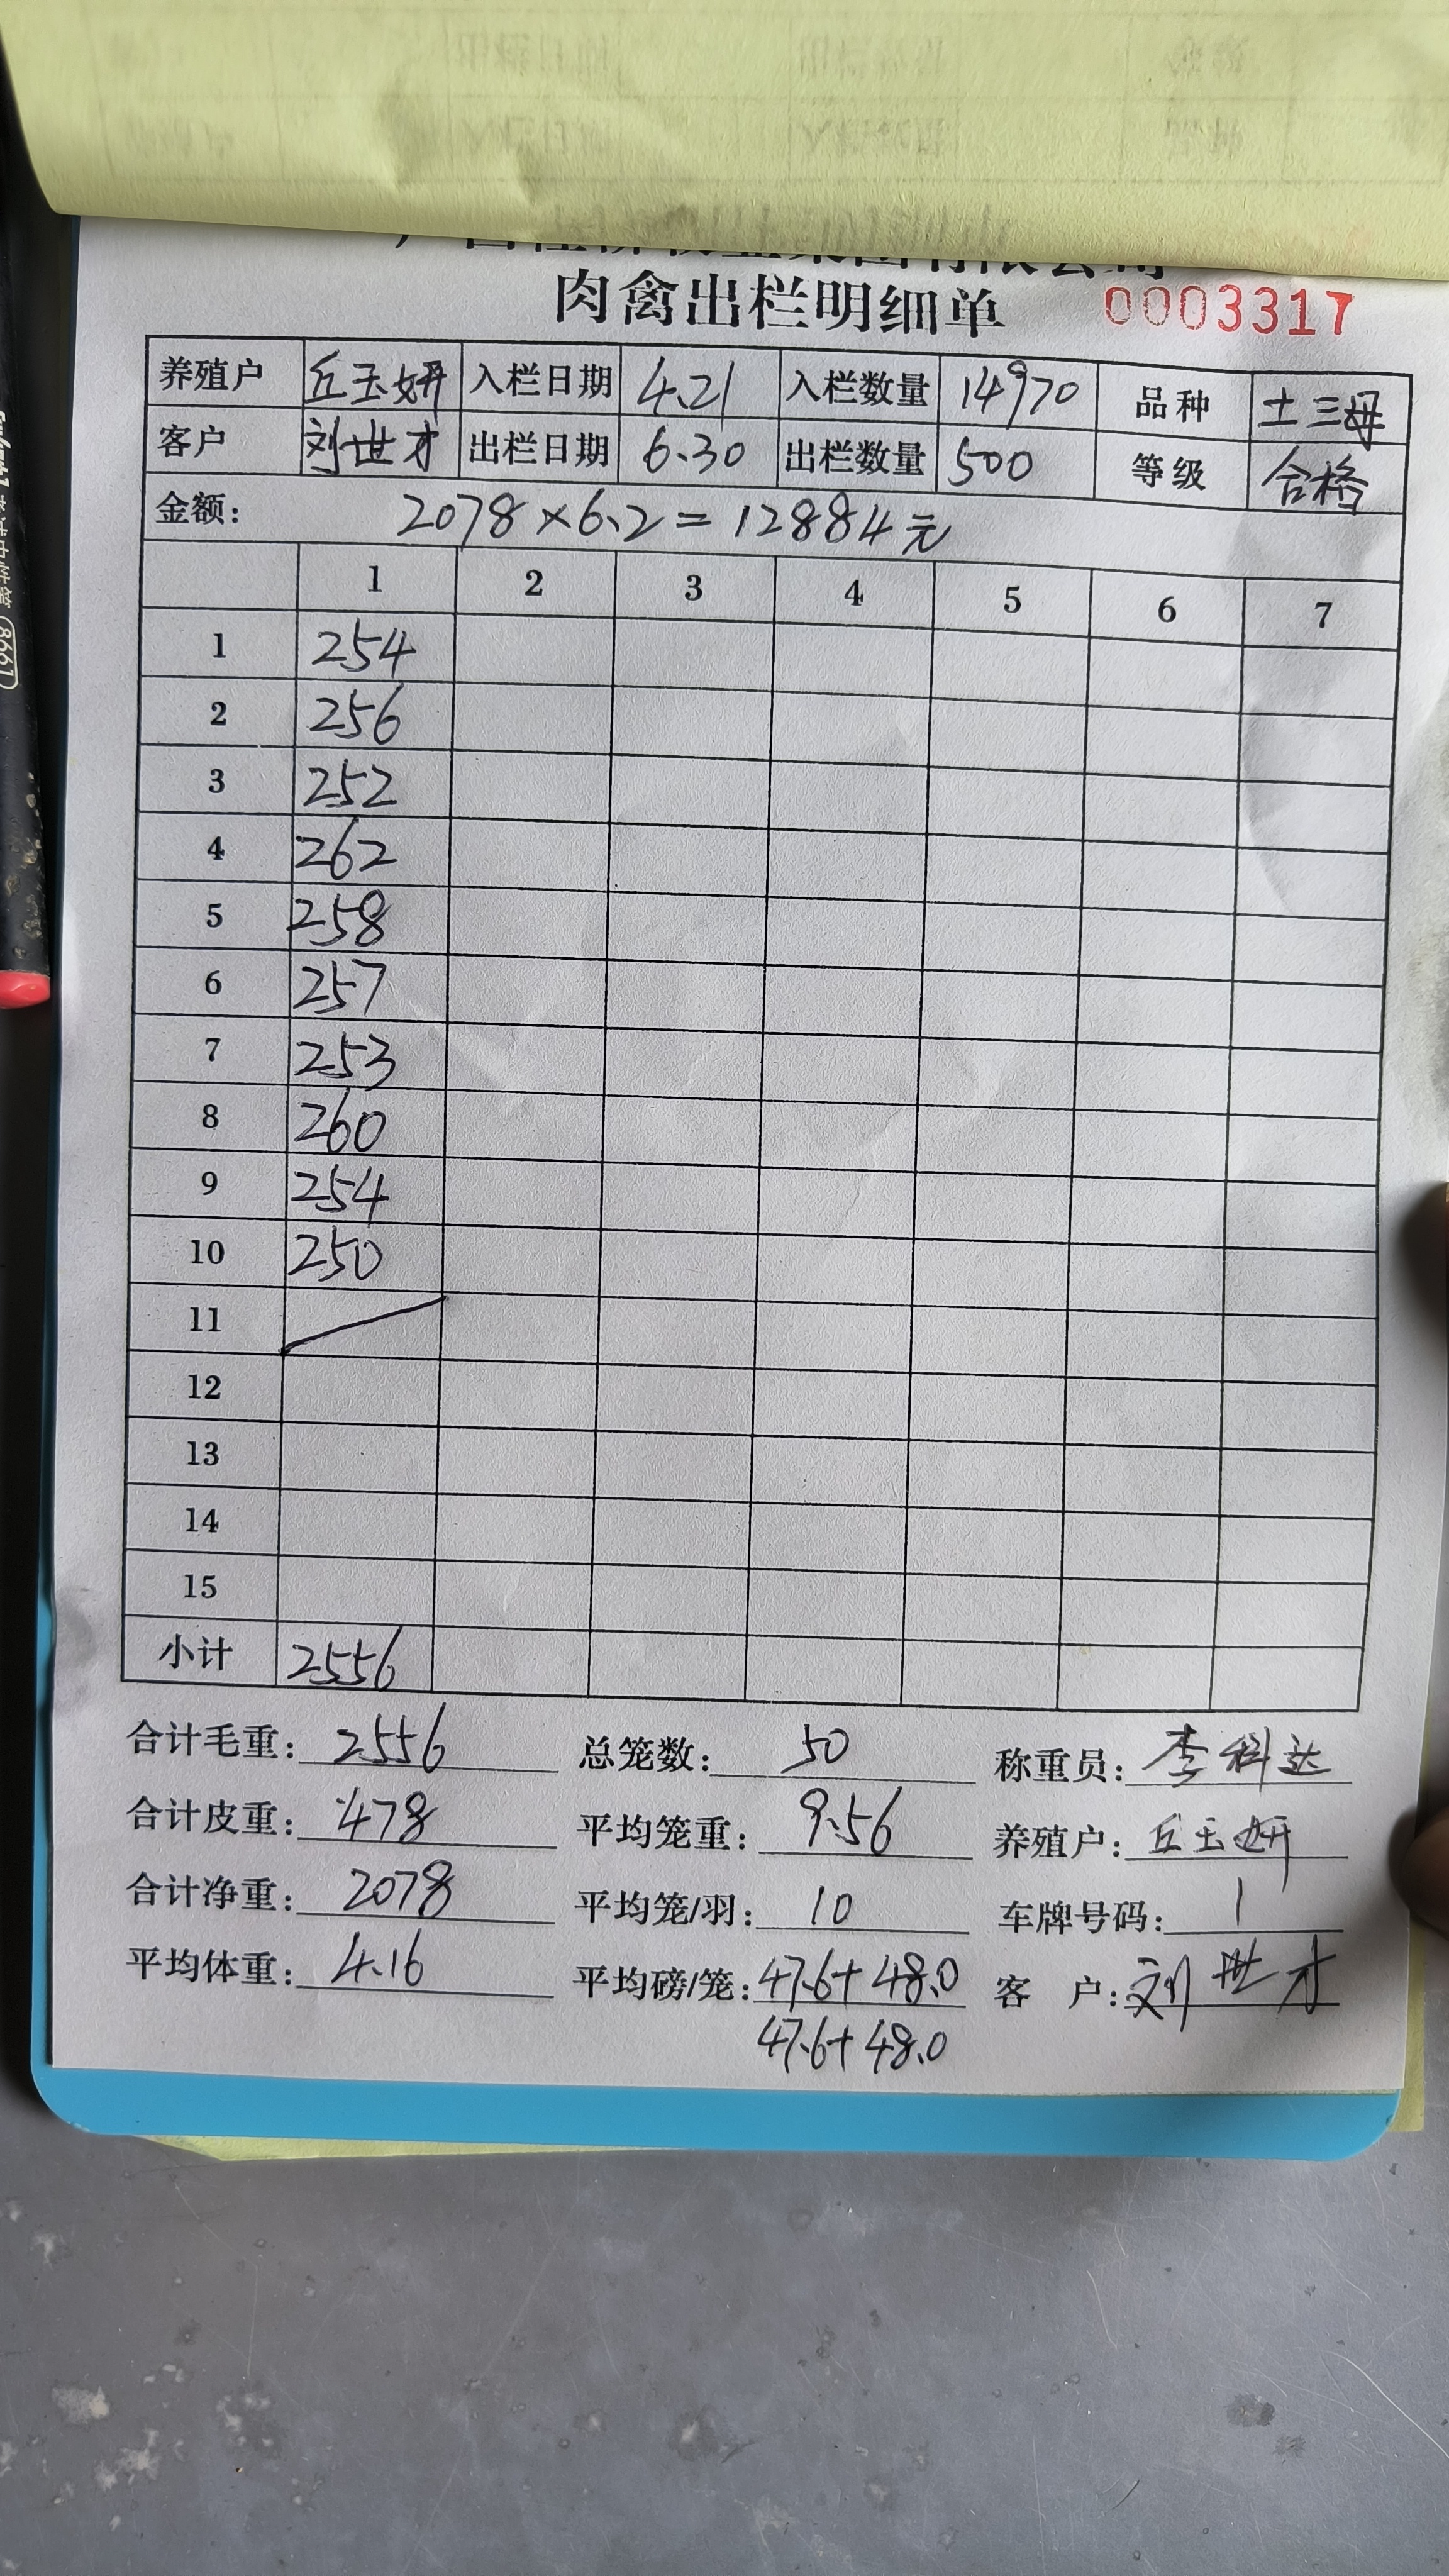 肉禽出栏明细单 0003317
养殖户 丘玉妍 入栏日期 4.21 入栏数量 14970 品种 土三母
客户 刘世才 出栏日期 6.30 出栏数量 500 等级 合格
金额: 2078×6.2=12884元
1 2 3 4 5 6 7
1 254
2 256
3 252
4 262
5 258
6 257
7 253
8 260
9 254
10 250
11
12
13
14
15
小计 2556
合计毛重: 2556 总笼数: 50 称重员: 李科达
合计皮重: 478 平均笼重: 9.56 养殖户: 丘玉妍
合计净重: 2078 平均笼/羽: 10 车牌号码: 1
平均体重: 4.16 平均磅/笼: 47.6+48.0 客 户: 刘世才
47.6+48.0